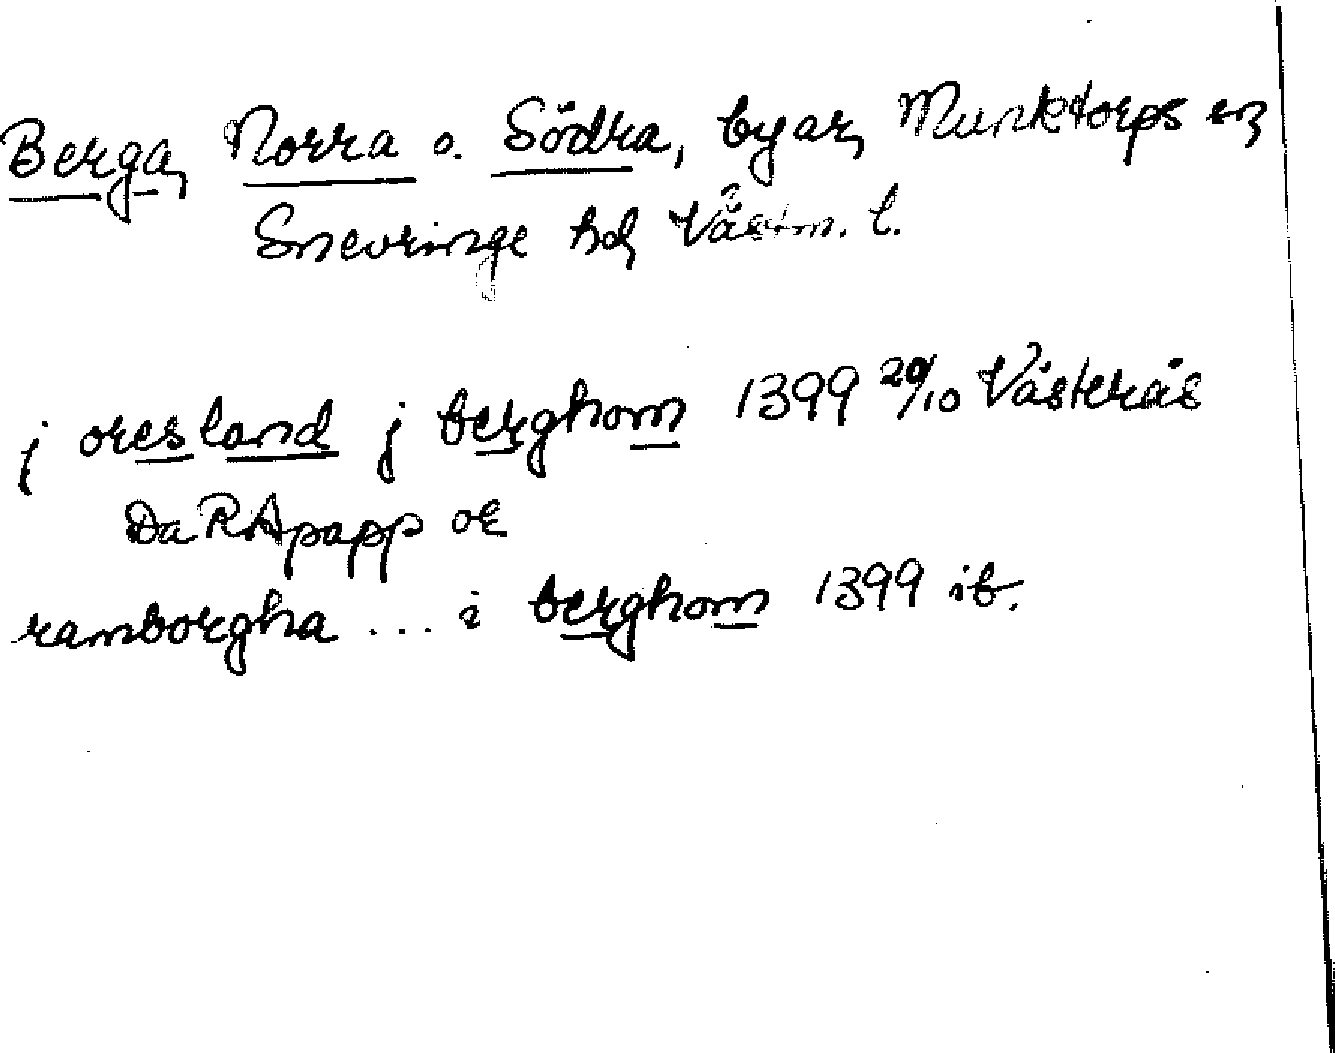 Berga, Norra o. Södra, byar, Munktorps sn,
Snevringe hd, Västm. l.
j oresland j berghom 1399 20/10 Västerås
Da RApapp or
ramborgha ... i berghom 1399 ib.